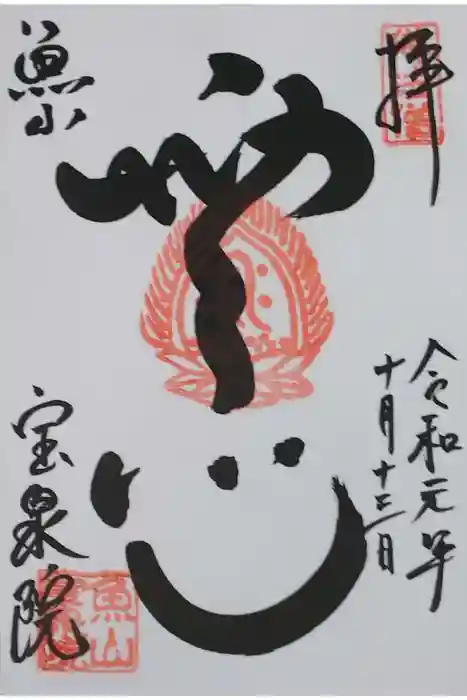 拝
令和元年
十月十三日
無心
魚山
宝泉院